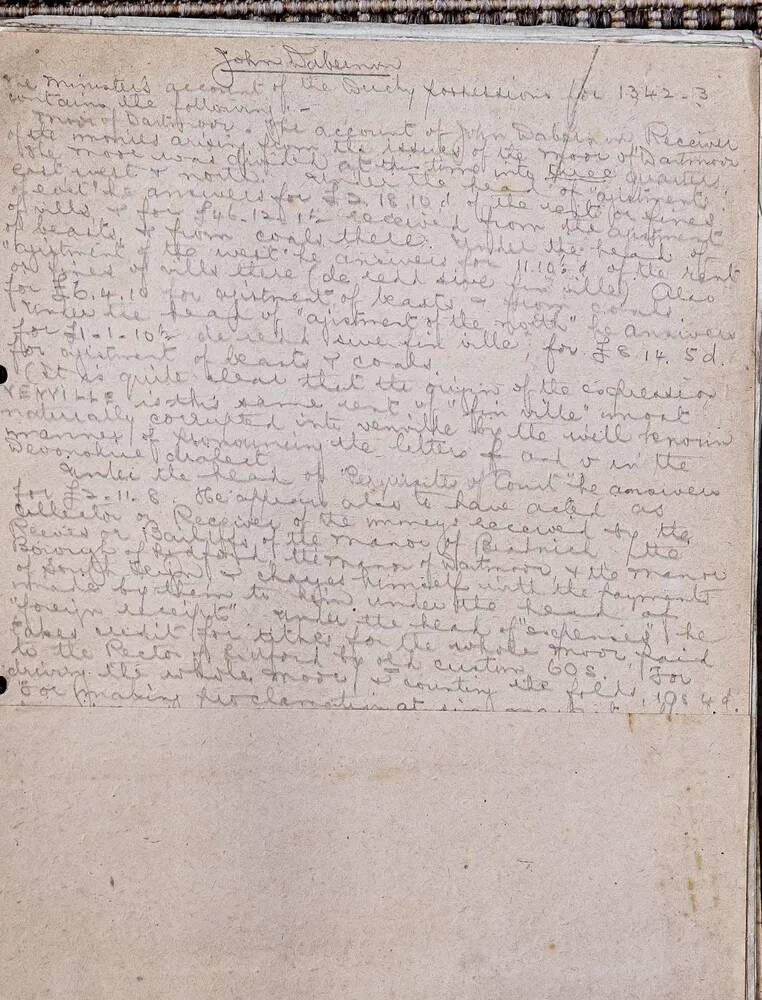 John Dabernon
The Minister's account of the Duchy possessions for 1342-3
contains the following :-
Moor of Dartmoor - The account of John Dabernon Receiver
of the monies arising from the issues of the moor of Dartmoor
The moor was divided at this time into three quarters,
east west & north. Under the head of "ajistments
of east" he answers for £3.18.10d of the rent or fines
of vills, & for £46.12.1½ received from the ajistment
of beasts & from coals there. Under the head of
"ajistment of the west" he answers for 11.10½d of the rent
or fines of vills there (de redd sive fin ville) Also
for £6.4.10 for ajistment of beasts & from coals.
Under the head of "ajistment of the north" he answers
for £1-1-10½ de redd sive fin ville, for £8.14.5d.
for ajistment of beasts & coals.
(It is quite clear that the origin of the expression
VENVILLE is this same rent of "fin ville" most
naturally corrupted into venville by the well known
manner of pronouncing the letters f and v in the
Devonshire dialect
Under the head of "Perquisites of Court" he answers
for £2-11-8. He appears also to have acted as
Collector or Receiver of the moneys received by the
Reeves or Bailiffs of the manor of the
Borough of Lydford, the manor of Dartmoor & the manor
of South Teign, & charges himself with the payments
made by them to him under the head of
"foreign receipts" Under the head of "expenses" he
takes credit for tithes for the whole moor paid
to the Rector of Lidford by old custom 60s. For
driving the whole moor & counting the folds, 19s 4d.
For making proclamation at